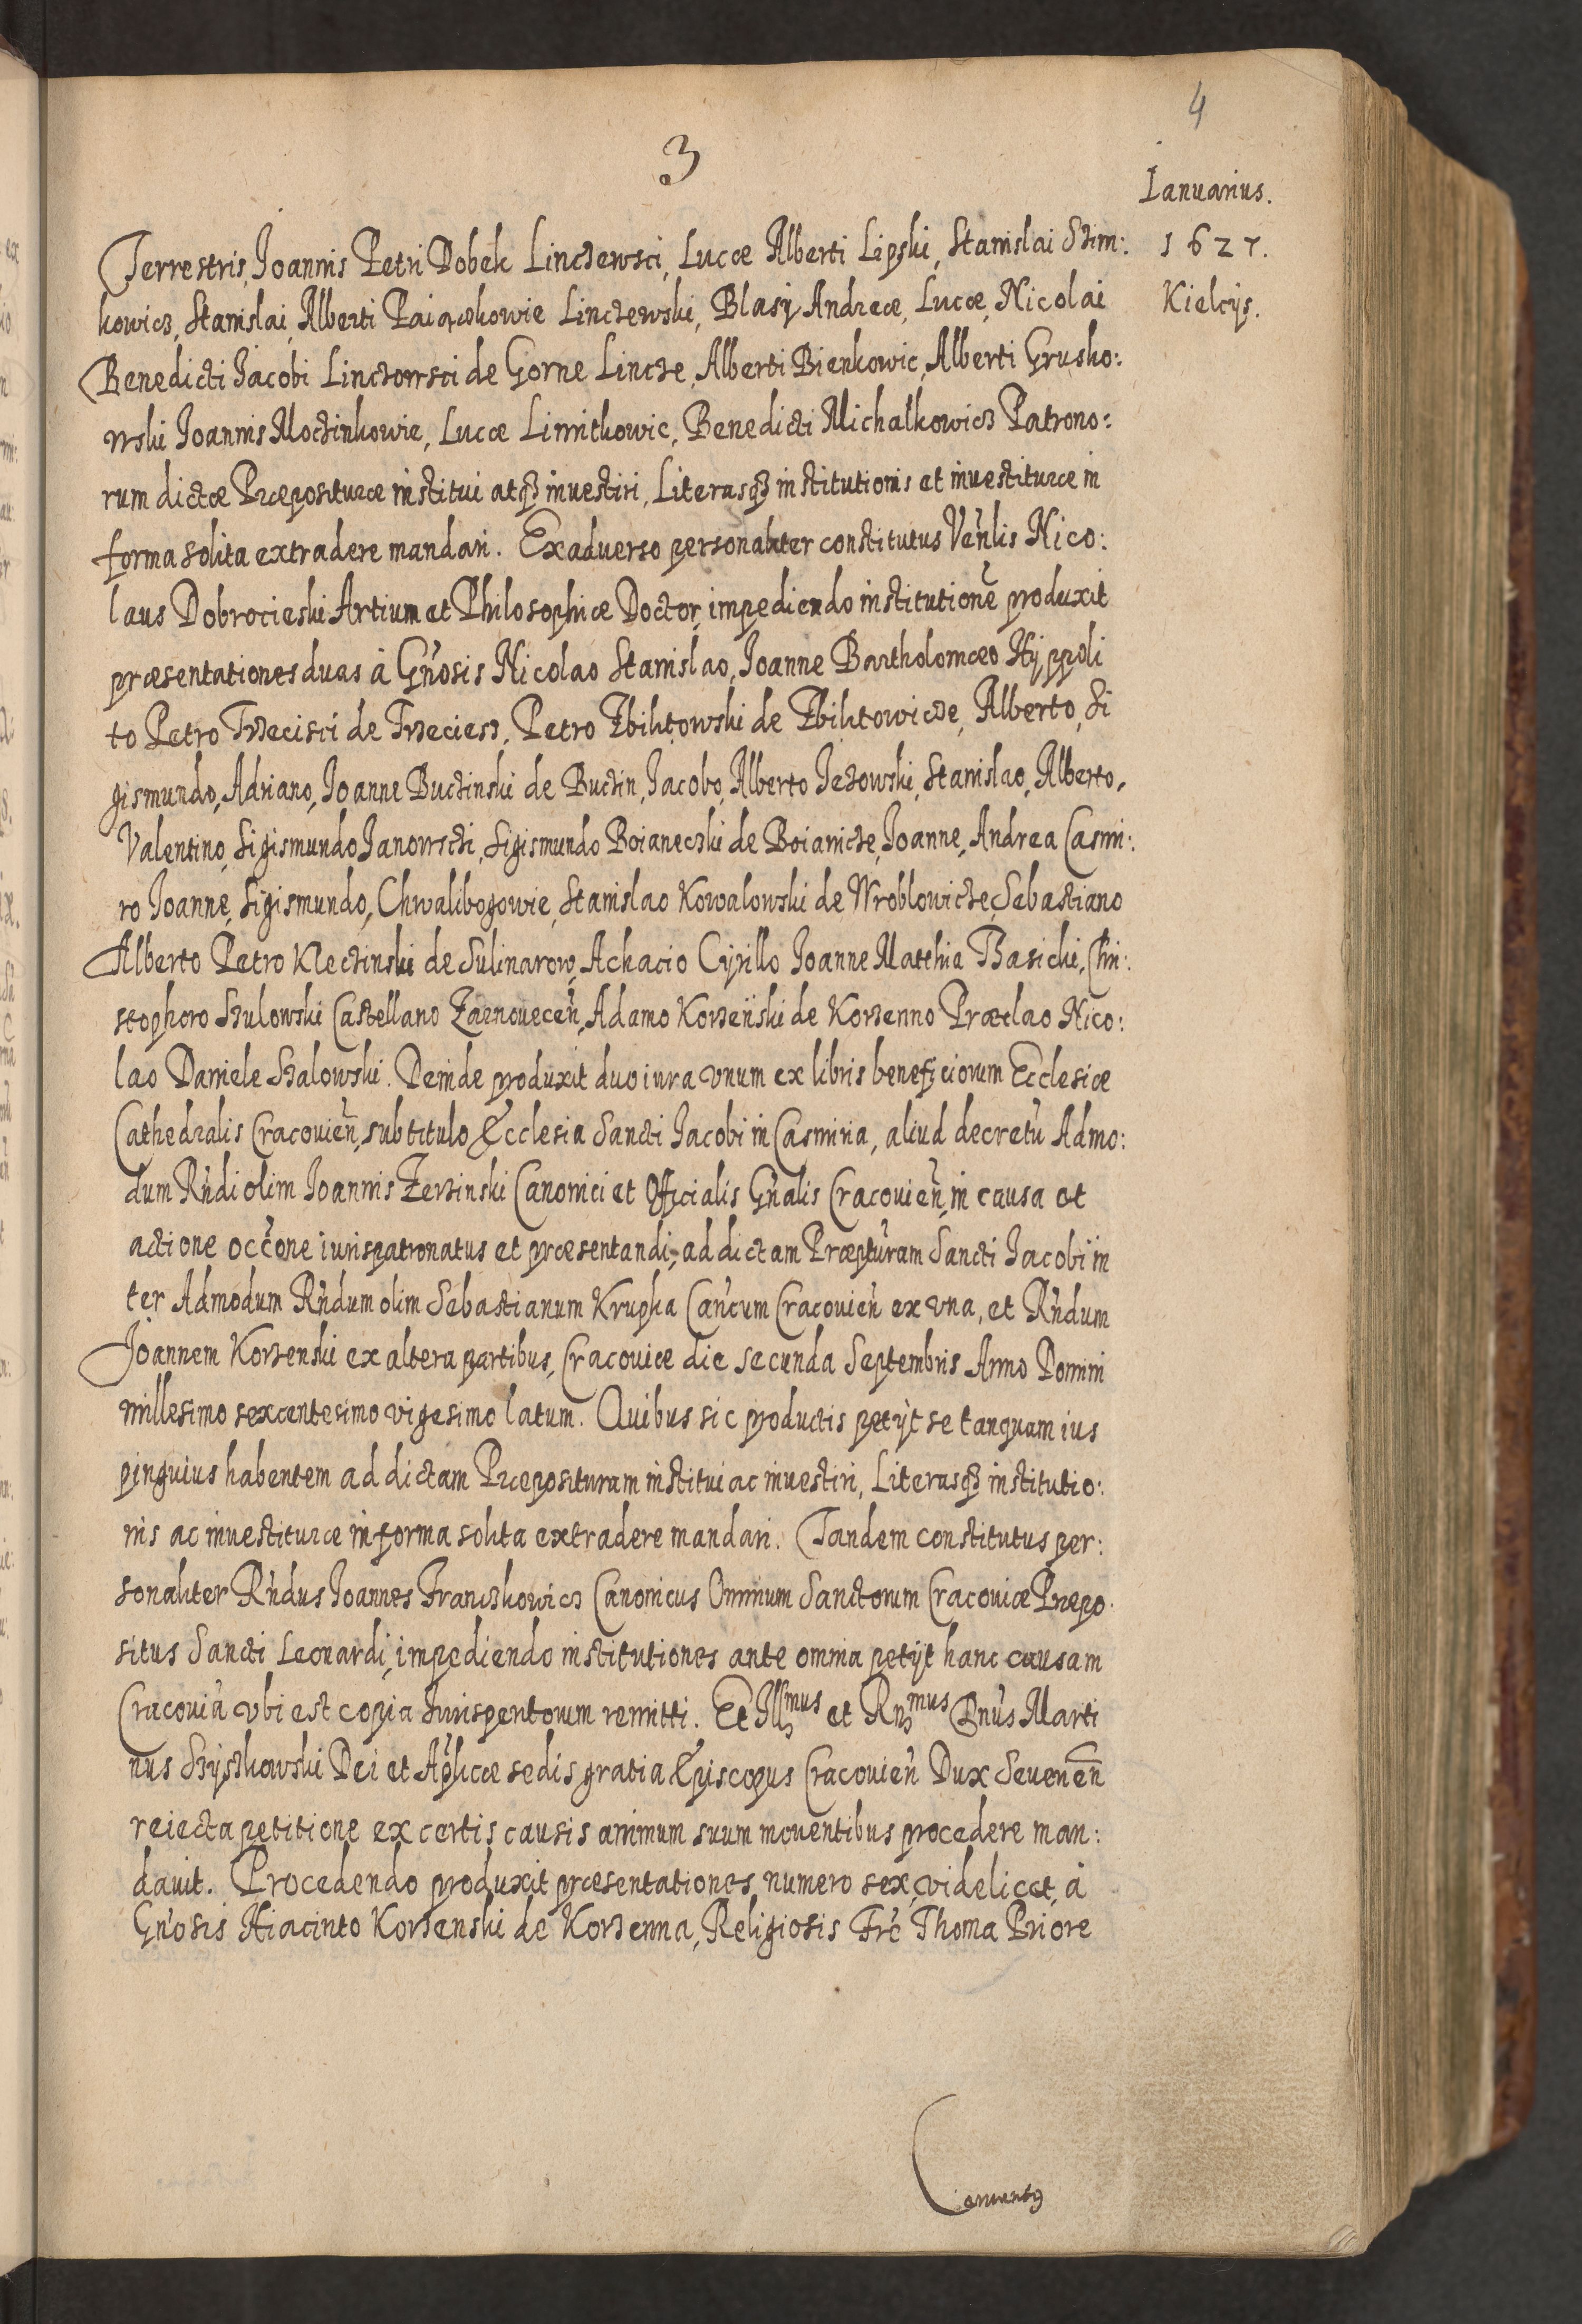 4
3
Ianuarius.
1627.
Kielcijs.
Terrestris, Joannis Petri Dobek Linczewsci, Lucæ Alberti Lipski, Stanislai Szim:
kowicz, Stanislai, Alberti Paiączkowie Linczewski, Blasÿ Andreæ, Lucæ, Nicolai
Benedicti Jacobi Linczowsci de Gorne Lincze, Alberti Bienkowic, Alberti Grusko:
wski Joannis Moczinkowie, Lucæ Limitkowic, Benedicti Michalkowicz Patrono:
rum dictæ Præposituræ institui atqȝ inuestiri, Literasqȝ institutionis et inuestituræ in
forma solita extradere mandari. Exaduerso personaliter constitutus Veñlis Nico:
laus Dobrocieski Artium et Philosophiæ Doctor, impediendo institutionẽ produxit
præsentationes duas à Gñosis Nicolao Stanislao, Joanne Bartholomæo Hÿppoli
to Petro Trzecisci de Trzeciesz, Petro Zbiltowski de Zbiltowicze, Alberto, Si
gismundo, Adriano, Joanne Buczinski de Buczin, Jacobo, Alberto Jezowski, Stanislao, Alberto,
Valentino, Sigismundo Janowscti, Sigismundo Boianeczki de Boiancze, Joanne, Andrea Casimi:
ro Joanne, Sigismundo, Chwalibogowie, Stanislao Kowalowski de Wroblowicze, Sebastiano
Alberto Petro Kleczinski de Sulinarow, Achacio Cÿrillo Joanne Matthia Basicki, Chri:
stophoro Szulowski Castellano Zarnoueceñ, Adamo Korzeński de Korzenno Præclao Nico:
lao Daniele Szalowski. Deinde produxit duo iura vnum ex libris beneficiorum Ecclesiæ
Cathedralis Cracouieñ, sub titulo Ecclesia Sancti Jacobi in Casimiria, aliud decretũ Admo:
dum Rñdi olim Joannis Zerzinski Canonici et Officialis Gñalis Cracouieñ, in causa et
actione occõne iurispatronatus et præsentandi, ad dictam Præpturam Sancti Jacobi in
ter Admodum Rñdum olim Sebastianum Krupka Cañcum Cracouieñ ex vna, et Rñdum
Joannem Korzenski ex altera partibus, Cracouiæ die secunda Septembris Anno Domini
millesimo sexcentesimo vigesimo latum. Quibus sic productis petÿt se tanquam ius
pinguius habentem ad dictam Præposituram institui ac inuestiri, Literasqȝ institutio:
nis ac inuestituræ in forma solita extradere mandari. Tandem constitutus per:
sonaliter Rñdus Joannes Franczkowicz Canonicus Omnium Sanctorum Cracouiæ Præpo
situs Sancti Leonardi, impediendo institutiones ante omnia petÿt hanc causam
Cracouiã vbi est copia Jurisperitorum remitti. Et Illmus et Rnmus Dñus Marti
nus Szÿszkowski Dei et Aplicæ sedis gratia Episcopus Cracouieñ Dux Seuerieñ
reiecta petitione ex certis causis animum suum mouentibus procedere man:
dauit. Procedendo produxit præsentationes numero sex, videlicet, à
Gñosis Hiacinto Korzenski de Korzenna, Religiosis Frẽ Thoma Priore
Conuentus